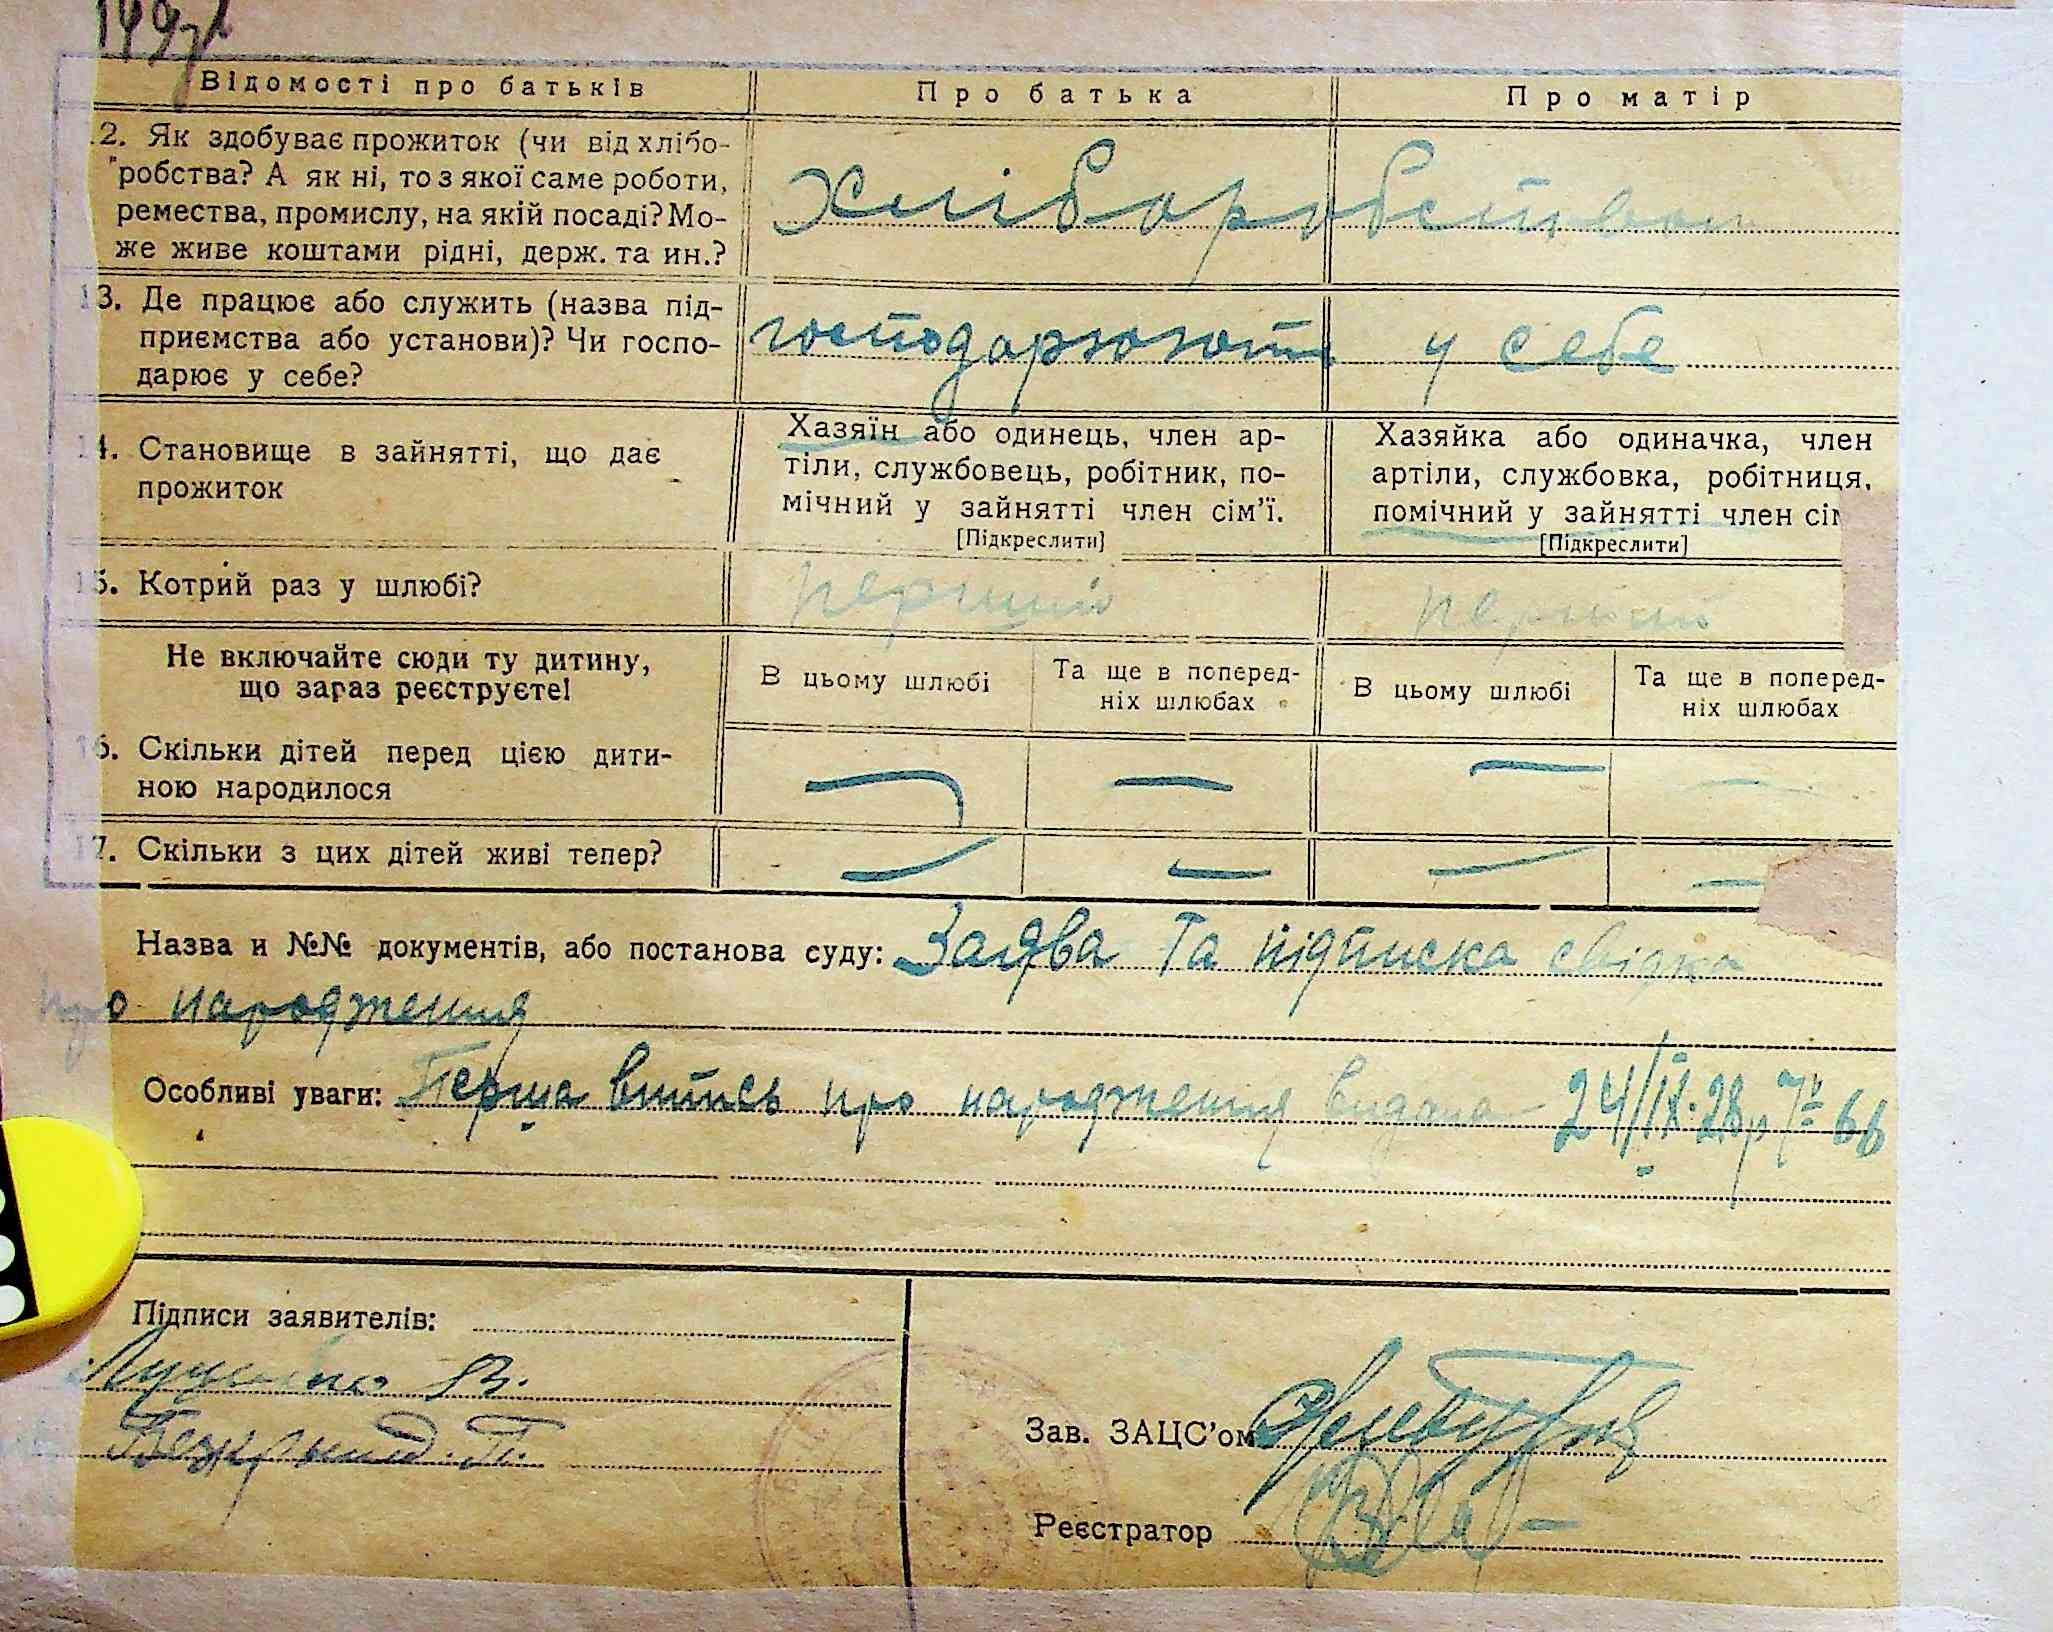 149
Відомості про батьків
Про батька
Про матір
12. Як здобуває прожиток (чи від хлібо-
робства? А як ні, то з якої саме роботи,
ремества, промислу, на якій посаді? Мо-
же живе коштами рідні, держ. та ин.?
хліборобством
13. Де працює або служить (назва під-
приємства або установи)? Чи госпо-
дарює у себе?
господарюють у себе
14. Становище в зайнятті, що дає
прожиток
Хазяїн або одинець, член ар-
тіли, службовець, робітник, по-
мічний у зайнятті член сім'ї.
[Підкреслити]
Хазяйка або одиначка, член
артіли, службовка, робітниця,
помічний у зайнятті член сім
[Підкреслити]
15. Котрий раз у шлюбі?
перший
перший
Не включайте сюди ту дитину,
що зараз реєструєте!
В цьому шлюбі
Та ще в поперед-
ніх шлюбах
В цьому шлюбі
Та ще в поперед-
ніх шлюбах
16. Скільки дітей перед цією дити-
ною народилося
— — — —
17. Скільки з цих дітей живі тепер?
— — — —
Назва и №№ документів, або постанова суду: Заява та підписка свідка
про народження
Особливі уваги: Перша випись про народження видана 24/IX-28р
Підписи заявителів:
В.
П.
Зав. ЗАЦС'ом
Реєстратор